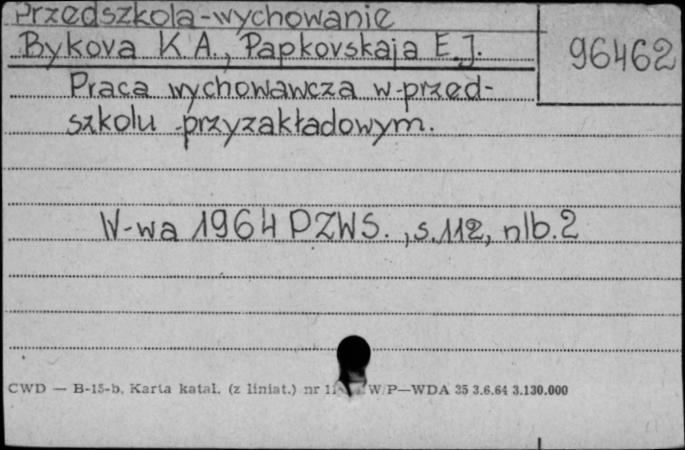 Przedszkola-wychowanie
Bykova K A., Papkovskaja E.J.
96462
Praca wychowawcza w-przed-
szkolu -przyzakładowym.
W-wa 1964 PZWS., s.112, nlb.2
CWD — B-15-b, Karta katal. (z liniat.) nr W P—WDA 35 3.6.64 3.130.000